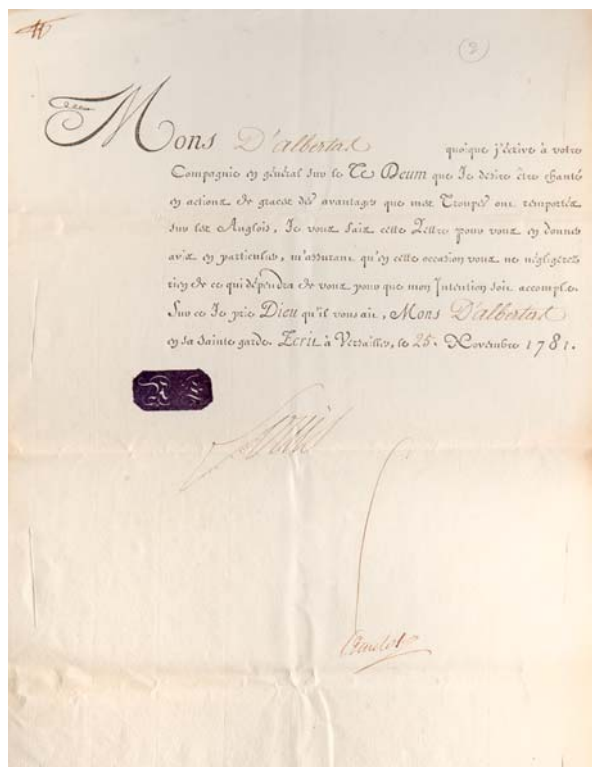 (2)
Mons D'albertas quoique j'écrive à votre
Compagnie en général sur le Te Deum que Je desire être chanté
en actions de graces des avantages que mes Troupes ont remportés
sur les Anglois, Je vous fais cette Lettre pour vous en donner
avis en particulier, m'assurant qu'en cette occasion vous ne négligerez
rien de ce qui dépendra de vous pour que mon Intention soit accomplie.
Sur ce Je prie Dieu qu'il vous ait, Mons D'albertas
en sa sainte garde. Ecrit à Versailles, le 25. Novembre 1781.
Louis